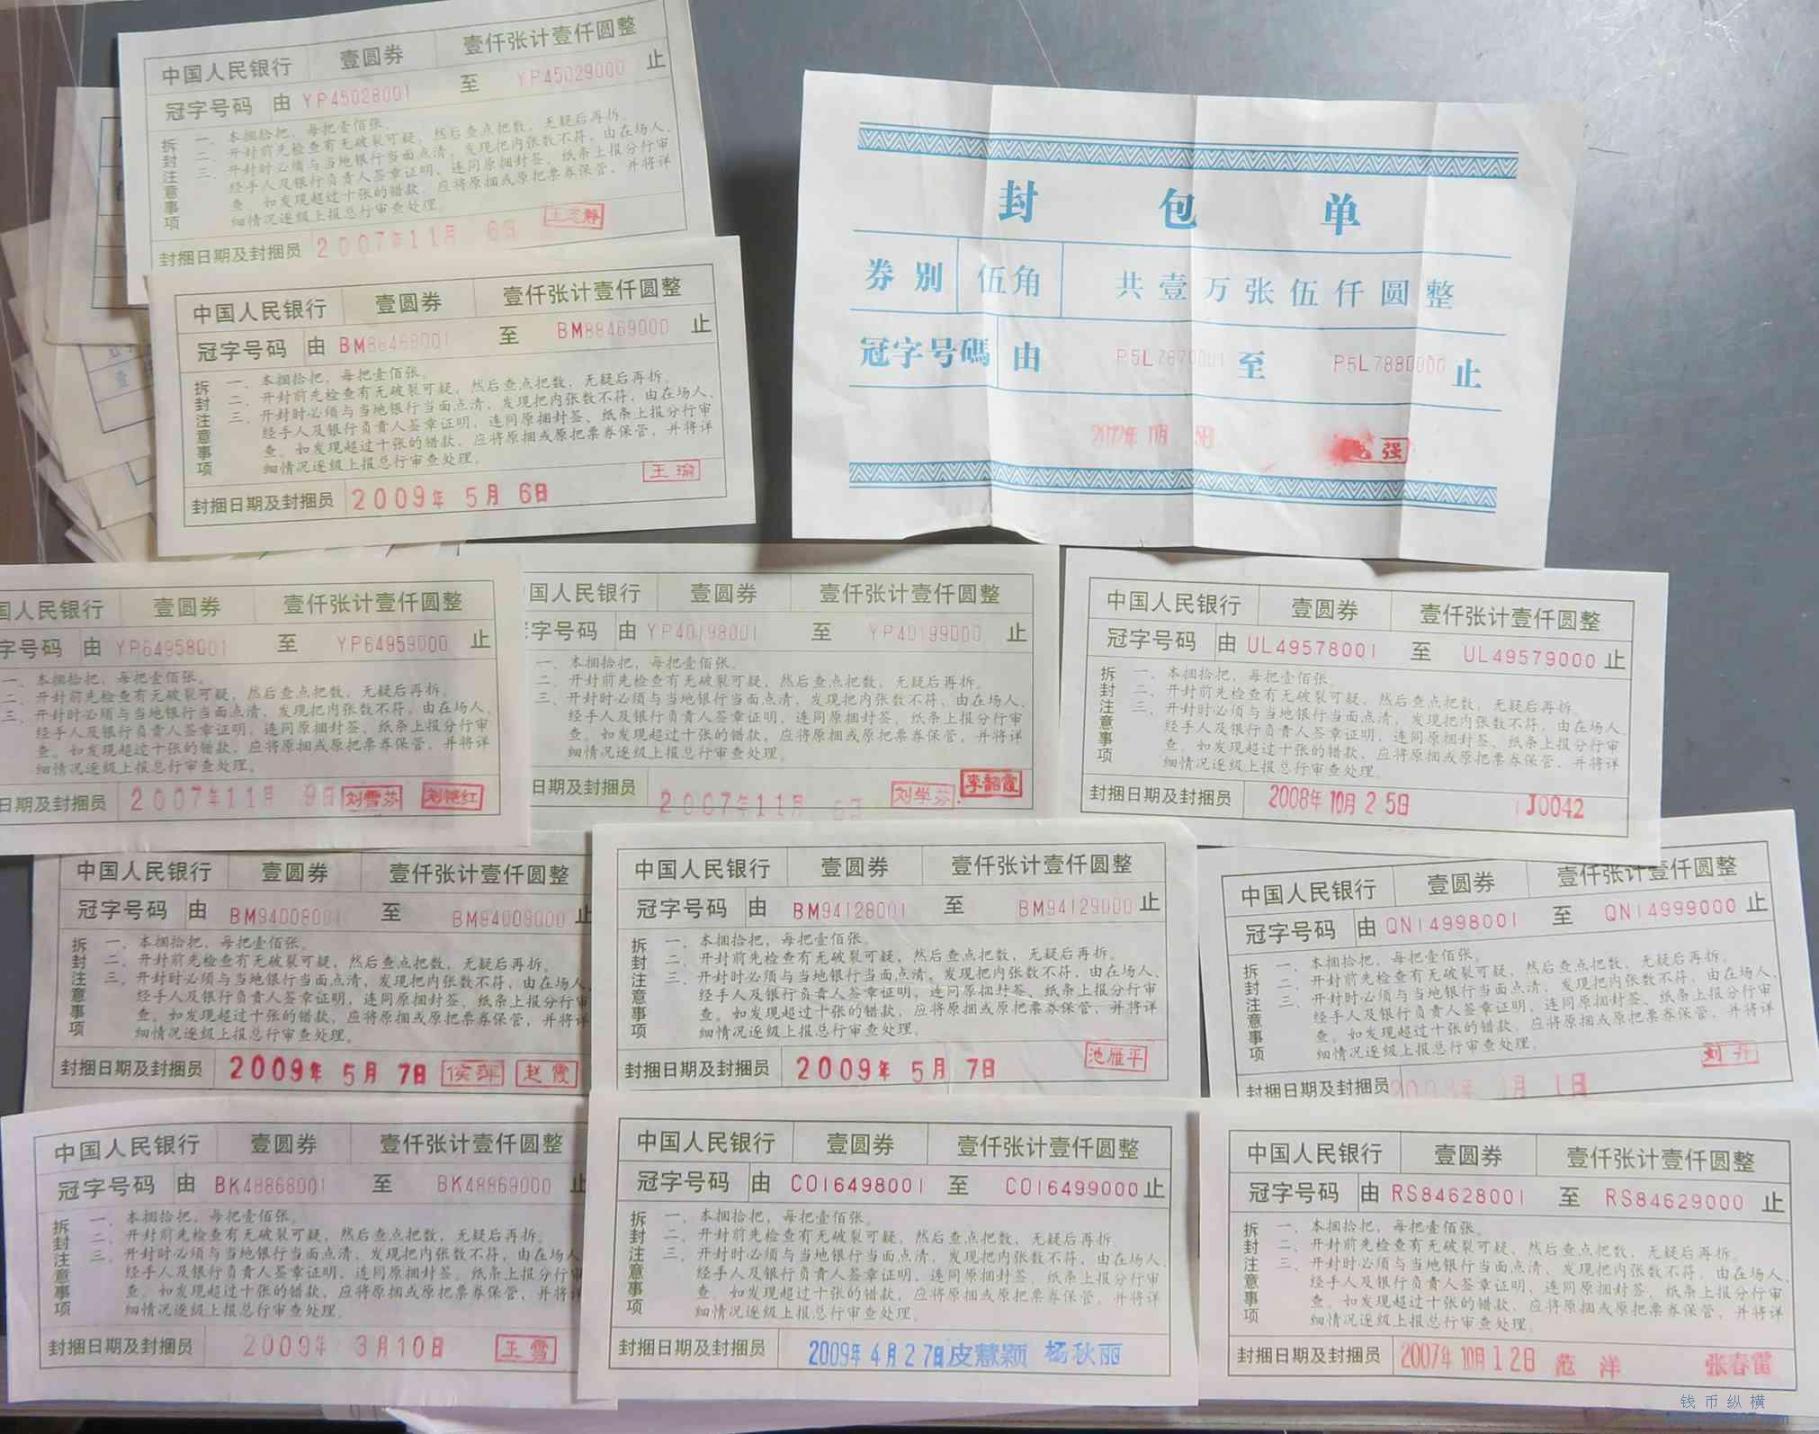 中国人民银行 壹圆券 壹仟张计壹仟圆整
冠字号码 由 YP45028001 至 YP45029000 止
拆封注意事项
一、本捆拾把，每把壹佰张。
二、开封前先检查有无破裂可疑，然后查点把数，无疑后再拆。
三、开封时必须与当地银行当面点清，发现把内张数不符，由在场人、
经手人及银行负责人签章证明，连同原捆封签、纸条上报分行审
查。如发现超过十张的错款，应将原捆或原把票券保管，并将详
细情况逐级上报总行审查处理。
封捆日期及封捆员 2007年11月 6日
封包单
券别 伍角 共壹万张伍仟圆整
冠字号碼 由 至 P5L7880000 止
强
中国人民银行 壹圆券 壹仟张计壹仟圆整
冠字号码 由 BM88468001 至 BM88469000 止
拆封注意事项
一、本捆拾把，每把壹佰张。
二、开封前先检查有无破裂可疑，然后查点把数，无疑后再拆。
三、开封时必须与当地银行当面点清，发现把内张数不符，由在场人、
经手人及银行负责人签章证明，连同原捆封签、纸条上报分行审
查。如发现超过十张的错款，应将原捆或原把票券保管，并将详
细情况逐级上报总行审查处理。
封捆日期及封捆员 2009年 5月 6日 王瑜
国人民银行 壹圆券 壹仟张计壹仟圆整
字号码 由 YP64958001 至 YP64959000 止
一、本捆拾把，每把壹佰张。
二、开封前先检查有无破裂可疑，然后查点把数，无疑后再拆。
三、开封时必须与当地银行当面点清，发现把内张数不符，由在场人、
经手人及银行负责人签章证明，连同原捆封签、纸条上报分行审
查。如发现超过十张的错款，应将原捆或原把票券保管，并将详
细情况逐级上报总行审查处理。
日期及封捆员 2007年11月 9日 刘雪芬 刘艳红
国人民银行 壹圆券 壹仟张计壹仟圆整
字号码 由 YP40198001 至 YP40199000 止
一、本捆拾把，每把壹佰张。
二、开封前先检查有无破裂可疑，然后查点把数，无疑后再拆。
三、开封时必须与当地银行当面点清，发现把内张数不符，由在场人、
经手人及银行负责人签章证明，连同原捆封签、纸条上报分行审
查。如发现超过十张的错款，应将原捆或原把票券保管，并将详
细情况逐级上报总行审查处理。
日期及封捆员 2007年11月 6日 刘学芬 李韶霞
中国人民银行 壹圆券 壹仟张计壹仟圆整
冠字号码 由 UL49578001 至 UL49579000 止
拆封注意事项
一、本捆拾把，每把壹佰张。
二、开封前先检查有无破裂可疑，然后查点把数，无疑后再拆。
三、开封时必须与当地银行当面点清，发现把内张数不符，由在场人、
经手人及银行负责人签章证明，连同原捆封签、纸条上报分行审
查。如发现超过十张的错款，应将原捆或原把票券保管，并将详
细情况逐级上报总行审查处理。
封捆日期及封捆员 2008年10月25日 J0042
中国人民银行 壹圆券 壹仟张计壹仟圆整
冠字号码 由 BM94008001 至 BM94009000 止
拆封注意事项
一、本捆拾把，每把壹佰张。
二、开封前先检查有无破裂可疑，然后查点把数，无疑后再拆。
三、开封时必须与当地银行当面点清，发现把内张数不符，由在场人
经手人及银行负责人签章证明，连同原捆封签、纸条上报分行审
查。如发现超过十张的错款，应将原捆或原把票券保管，并将详
细情况逐级上报总行审查处理。
封捆日期及封捆员 2009年 5月 7日 侯萍 赵霞
中国人民银行 壹圆券 壹仟张计壹仟圆整
冠字号码 由 BM94128001 至 BM94129000 止
拆封注意事项
一、本捆拾把，每把壹佰张。
二、开封前先检查有无破裂可疑，然后查点把数，无疑后再拆。
三、开封时必须与当地银行当面点清，发现把内张数不符，由在场人、
经手人及银行负责人签章证明，连同原捆封签、纸条上报分行审
查。如发现超过十张的错款，应将原捆或原把票券保管，并将详
细情况逐级上报总行审查处理。
封捆日期及封捆员 2009年 5月 7日 池雁平
中国人民银行 壹圆券 壹仟张计壹仟圆整
冠字号码 由 QN14998001 至 QN14999000 止
拆封注意事项
一、本捆拾把，每把壹佰张。
二、开封前先检查有无破裂可疑，然后查点把数，无疑后再拆。
三、开封时必须与当地银行当面点清，发现把内张数不符，由在场人、
经手人及银行负责人签章证明，连同原捆封签、纸条上报分行审
查。如发现超过十张的错款，应将原捆或原把票券保管，并将详
细情况逐级上报总行审查处理。
封捆日期及封捆员 月 1日 刘丹
中国人民银行 壹圆券 壹仟张计壹仟圆整
冠字号码 由 BK48868001 至 BK48869000 止
拆封注意事项
一、本捆拾把，每把壹佰张。
二、开封前先检查有无破裂可疑，然后查点把数，无疑后再拆。
三、开封时必须与当地银行当面点清，发现把内张数不符，由在场人
经手人及银行负责人签章证明，连同原捆封签、纸条上报分行审
查。如发现超过十张的错款，应将原捆或原把票券保管，并将详
细情况逐级上报总行审查处理。
封捆日期及封捆员 2009年 3月10日 王雪
中国人民银行 壹圆券 壹仟张计壹仟圆整
冠字号码 由 CO16498001 至 CO16499000 止
拆封注意事项
一、本捆拾把，每把壹佰张。
二、开封前先检查有无破裂可疑，然后查点把数，无疑后再拆。
三、开封时必须与当地银行当面点清，发现把内张数不符，由在场人、
经手人及银行负责人签章证明，连同原捆封签、纸条上报分行审
查。如发现超过十张的错款，应将原捆或原把票券保管，并将详
细情况逐级上报总行审查处理。
封捆日期及封捆员 2009年4月27日 皮慧颖 杨秋丽
中国人民银行 壹圆券 壹仟张计壹仟圆整
冠字号码 由 RS84628001 至 RS84629000 止
拆封注意事项
一、本捆拾把，每把壹佰张。
二、开封前先检查有无破裂可疑，然后查点把数，无疑后再拆。
三、开封时必须与当地银行当面点清，发现把内张数不符，由在场人、
经手人及银行负责人签章证明，连同原捆封签、纸条上报分行审
查。如发现超过十张的错款，应将原捆或原把票券保管，并将详
细情况逐级上报总行审查处理。
封捆日期及封捆员 2007年10月12日 范洋 张春雷
钱币纵横